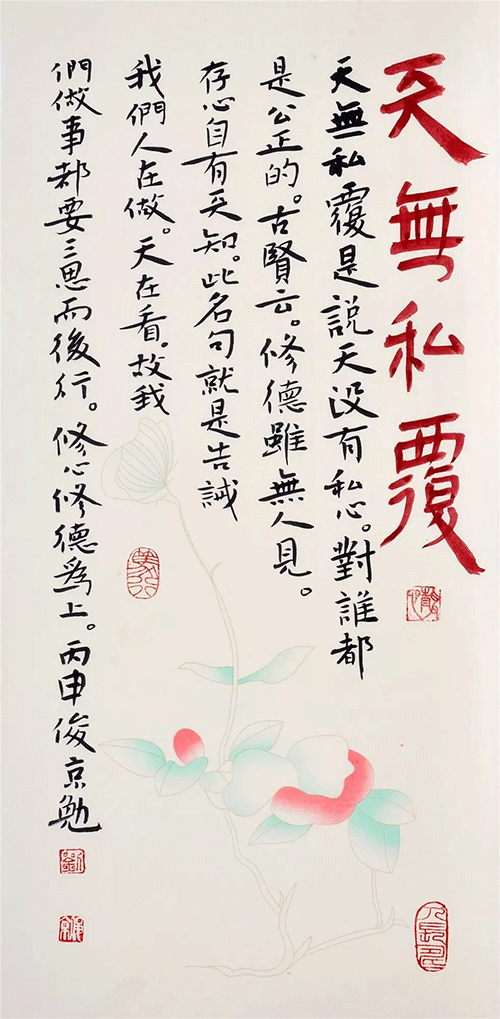 天無私覆
天無私覆是説天没有私心。對誰都
是公正的。古賢云。修德雖無人見。
存心自有天知。此名句就是告誡
我們人在做。天在看。故我
們做事都要三思而後行。修心修德爲上。丙申俊京勉